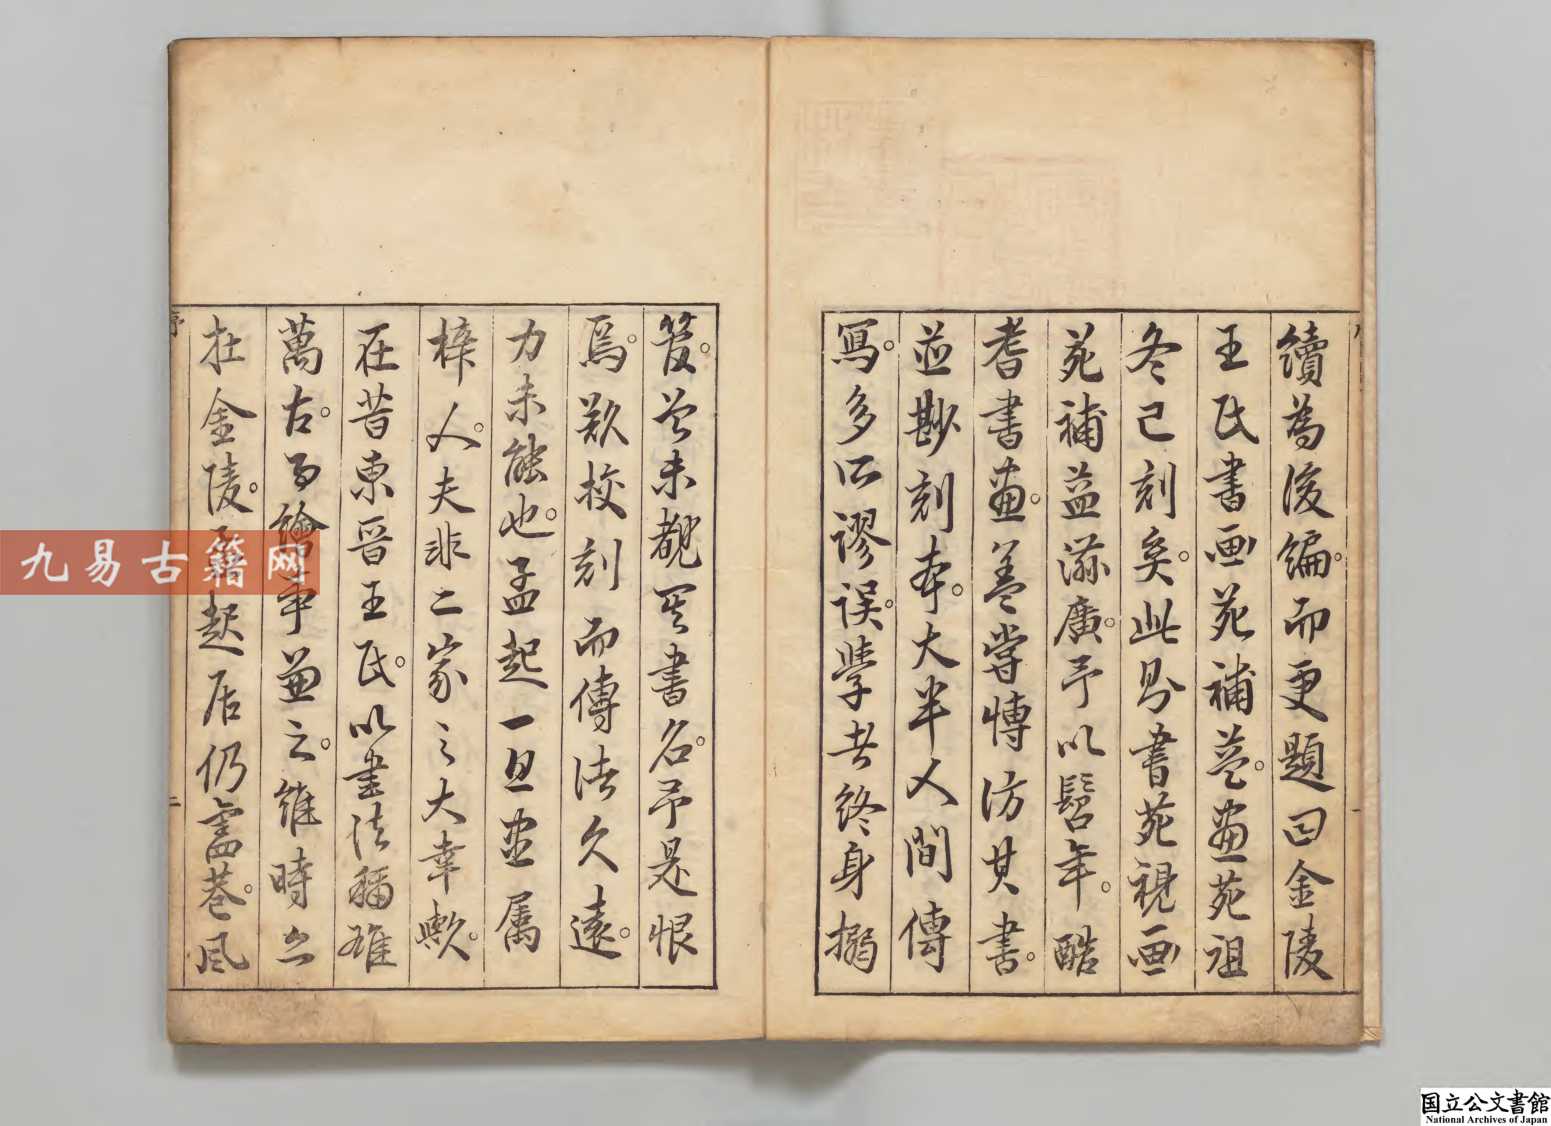 續為後編。而更題曰金陵
王氏書画苑補益。畫苑祖
冬已刻矣。此則書苑視画
苑補益添廣。予以髫年。酷
耆書畫。蓋嘗博訪其書。
並勘刻本。大半人間傳
寫。多所謬誤。學者終身搦
管。曾未覩其書名。予是恨
焉。欵校刻而傳諸久遠。
力未能也。孟起一旦畫屬
梓人。夫非二家之大幸歟。
在昔東晉王氏。以書法稱雄
萬古。而繪事兼之。維時亦
在金陵。孟起居仍烏巷。風
序
二
九易古籍网
国立公文書館
National Archives of Japan